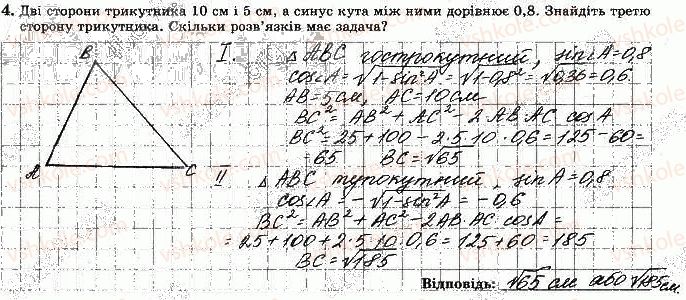 4. Дві сторони трикутника 10 см і 5 см, а синус кута між ними дорівнює 0,8. Знайдіть третю
сторону трикутника. Скільки розв'язків має задача?
B
A
C
I. △ ABC гострокутний, sin∠A = 0,8
cos∠A = √1-sin²A = √1-0,8² = √0,36 = 0,6
AB = 5 см, AC = 10 см
BC² = AB² + AC² - 2·AB·AC cosA
BC² = 25 + 100 - 2·5·10·0,6 = 125 - 60 =
= 65 BC = √65
II △ ABC тупокутний, sinA = 0,8
cos∠A = -√1-sin²A = -0,6
BC² = AB² + AC² - 2AB·AC·cosA =
= 25 + 100 + 2·5·10·0,6 = 125 + 60 = 185
BC = √185
Відповідь: √65 см або √185 см.
vshkole.com